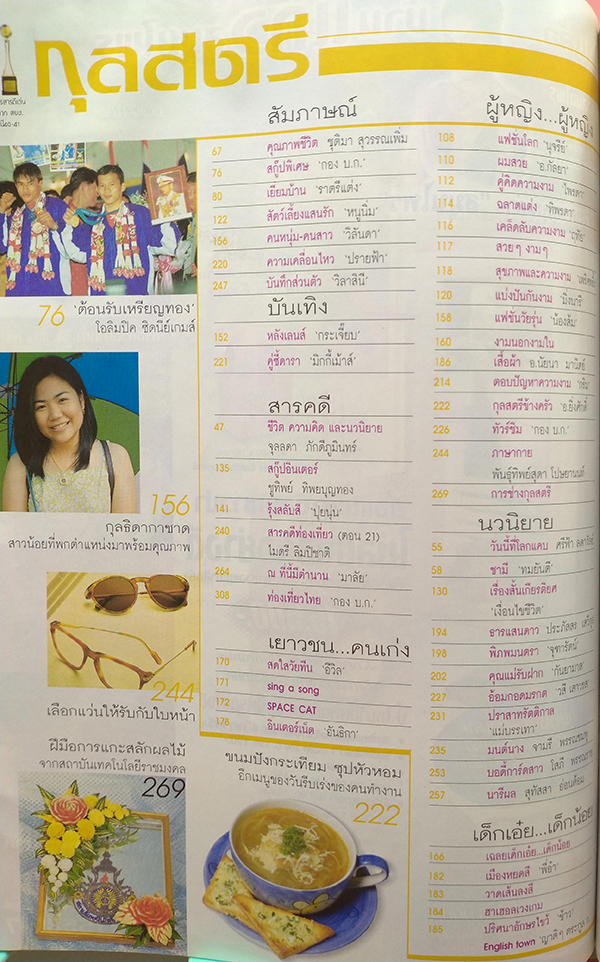 กุลสตรี
สัมภาษณ์
67 คุณภาพชีวิต ชุติมา สุวรรณเพิ่ม
76 สกู๊ปพิเศษ 'กอง บ.ก.'
80 เยี่ยมบ้าน 'ราตรีแต่ง'
122 สัตว์เลี้ยงแสนรัก 'หนูนิ่ม'
156 คนหนุ่ม-คนสาว 'วิลันดา'
220 ความเคลื่อนไหว 'ปรายฟ้า'
247 บันทึกส่วนตัว 'วิลาสินี'
บันเทิง
152 หลังเลนส์ 'กระเจี๊ยบ'
221 คู่ซี้ดารา 'มิกกี้เม้าส์'
สารคดี
47 ชีวิต ความคิด และนวนิยาย
จุลลดา ภักดีภูมินทร์
135 สกู๊ปอินเตอร์
ชูทิพย์ ทิพยบุญทอง
141 รุ้งสลับสี 'ปุยนุ่น'
240 สารคดีท่องเที่ยว (ตอน 21)
ไมตรี ลิมปิชาติ
264 ณ ที่นี้มีตำนาน 'มาลัย'
308 ท่องเที่ยวไทย 'กอง บ.ก.'
เยาวชน...คนเก่ง
170 สดใสวัยทีน 'อีวิล'
171 sing a song
172 SPACE CAT
178 อินเตอร์เน็ต 'อันธิกา'
ผู้หญิง...ผู้หญิง
108 แฟชั่นโลก 'นุจรีย์'
110 ผมสวย 'อ.กัลยา'
112 คู่คิดความงาม 'ไพรดา'
114 ฉลาดแต่ง 'ทิพรดา'
116 เคล็ดลับความงาม
117 สวยๆ งามๆ
118 สุขภาพและความงาม
120 แบ่งปันกันงาม 'มิ่งนารี'
158 แฟชั่นวัยรุ่น 'น้องส้ม'
160 งามนอกงามใน
186 เสื้อผ้า อ.นัยนา มานิตย์
214 ตอบปัญหาความงาม
222 กุลสตรีข้างครัว 'อ.ยิ่งศักดิ์'
226 ทัวร์ชิม 'กอง บ.ก.'
244 ภาษากาย
พันธุ์ทิพย์สุดา โปษยานนท์
269 การช่างกุลสตรี
นวนิยาย
55 วันนี้ที่โลกแคบ ศรีฟ้า
58 ซามี 'ทมยันตี'
130 เรื่องสั้นเกียรติยศ
'เงื่อนไขชีวิต'
194 ธารแสนดาว ประภัสสร
198 พิภพมนตรา 'จุฑารัตน์'
202 คุณแม่รับฝาก 'กันยามาส'
227 อ้อมกอดมรกต
231 ปราสาทรัตติกาล
'แม่บรรเทา'
235 มนต์นาง จามรี พรรณชมพู
253 บอดี้การ์ดสาว โสภี พรรณราย
257 นารีผล สุทัสสา อ่อนค้อม
เด็กเอ๋ย...เด็กน้อย
166 เฉลยเด็กเอ๋ย...เด็กน้อย
182 เมืองหยดสี 'พี่อ๋า'
183 วาดเส้นลงสี
184 ฮาเฮลวงเกม
185 ปริศนาอักษรไขว้ 'ข้าว'
English town
76 'ต้อนรับเหรียญทอง'
โอลิมปิค ซิดนีย์เกมส์
156
กุลธิดากาชาด
สาวน้อยที่พกตำแหน่งมาพร้อมคุณภาพ
244
เลือกแว่นให้รับกับใบหน้า
ฝีมือการแกะสลักผลไม้
จากสถาบันเทคโนโลยีราชมงคล
269
ขนมปังกระเทียม ซุปหัวหอม
อีกเมนูของวันรีบเร่งของคนทำงาน
222